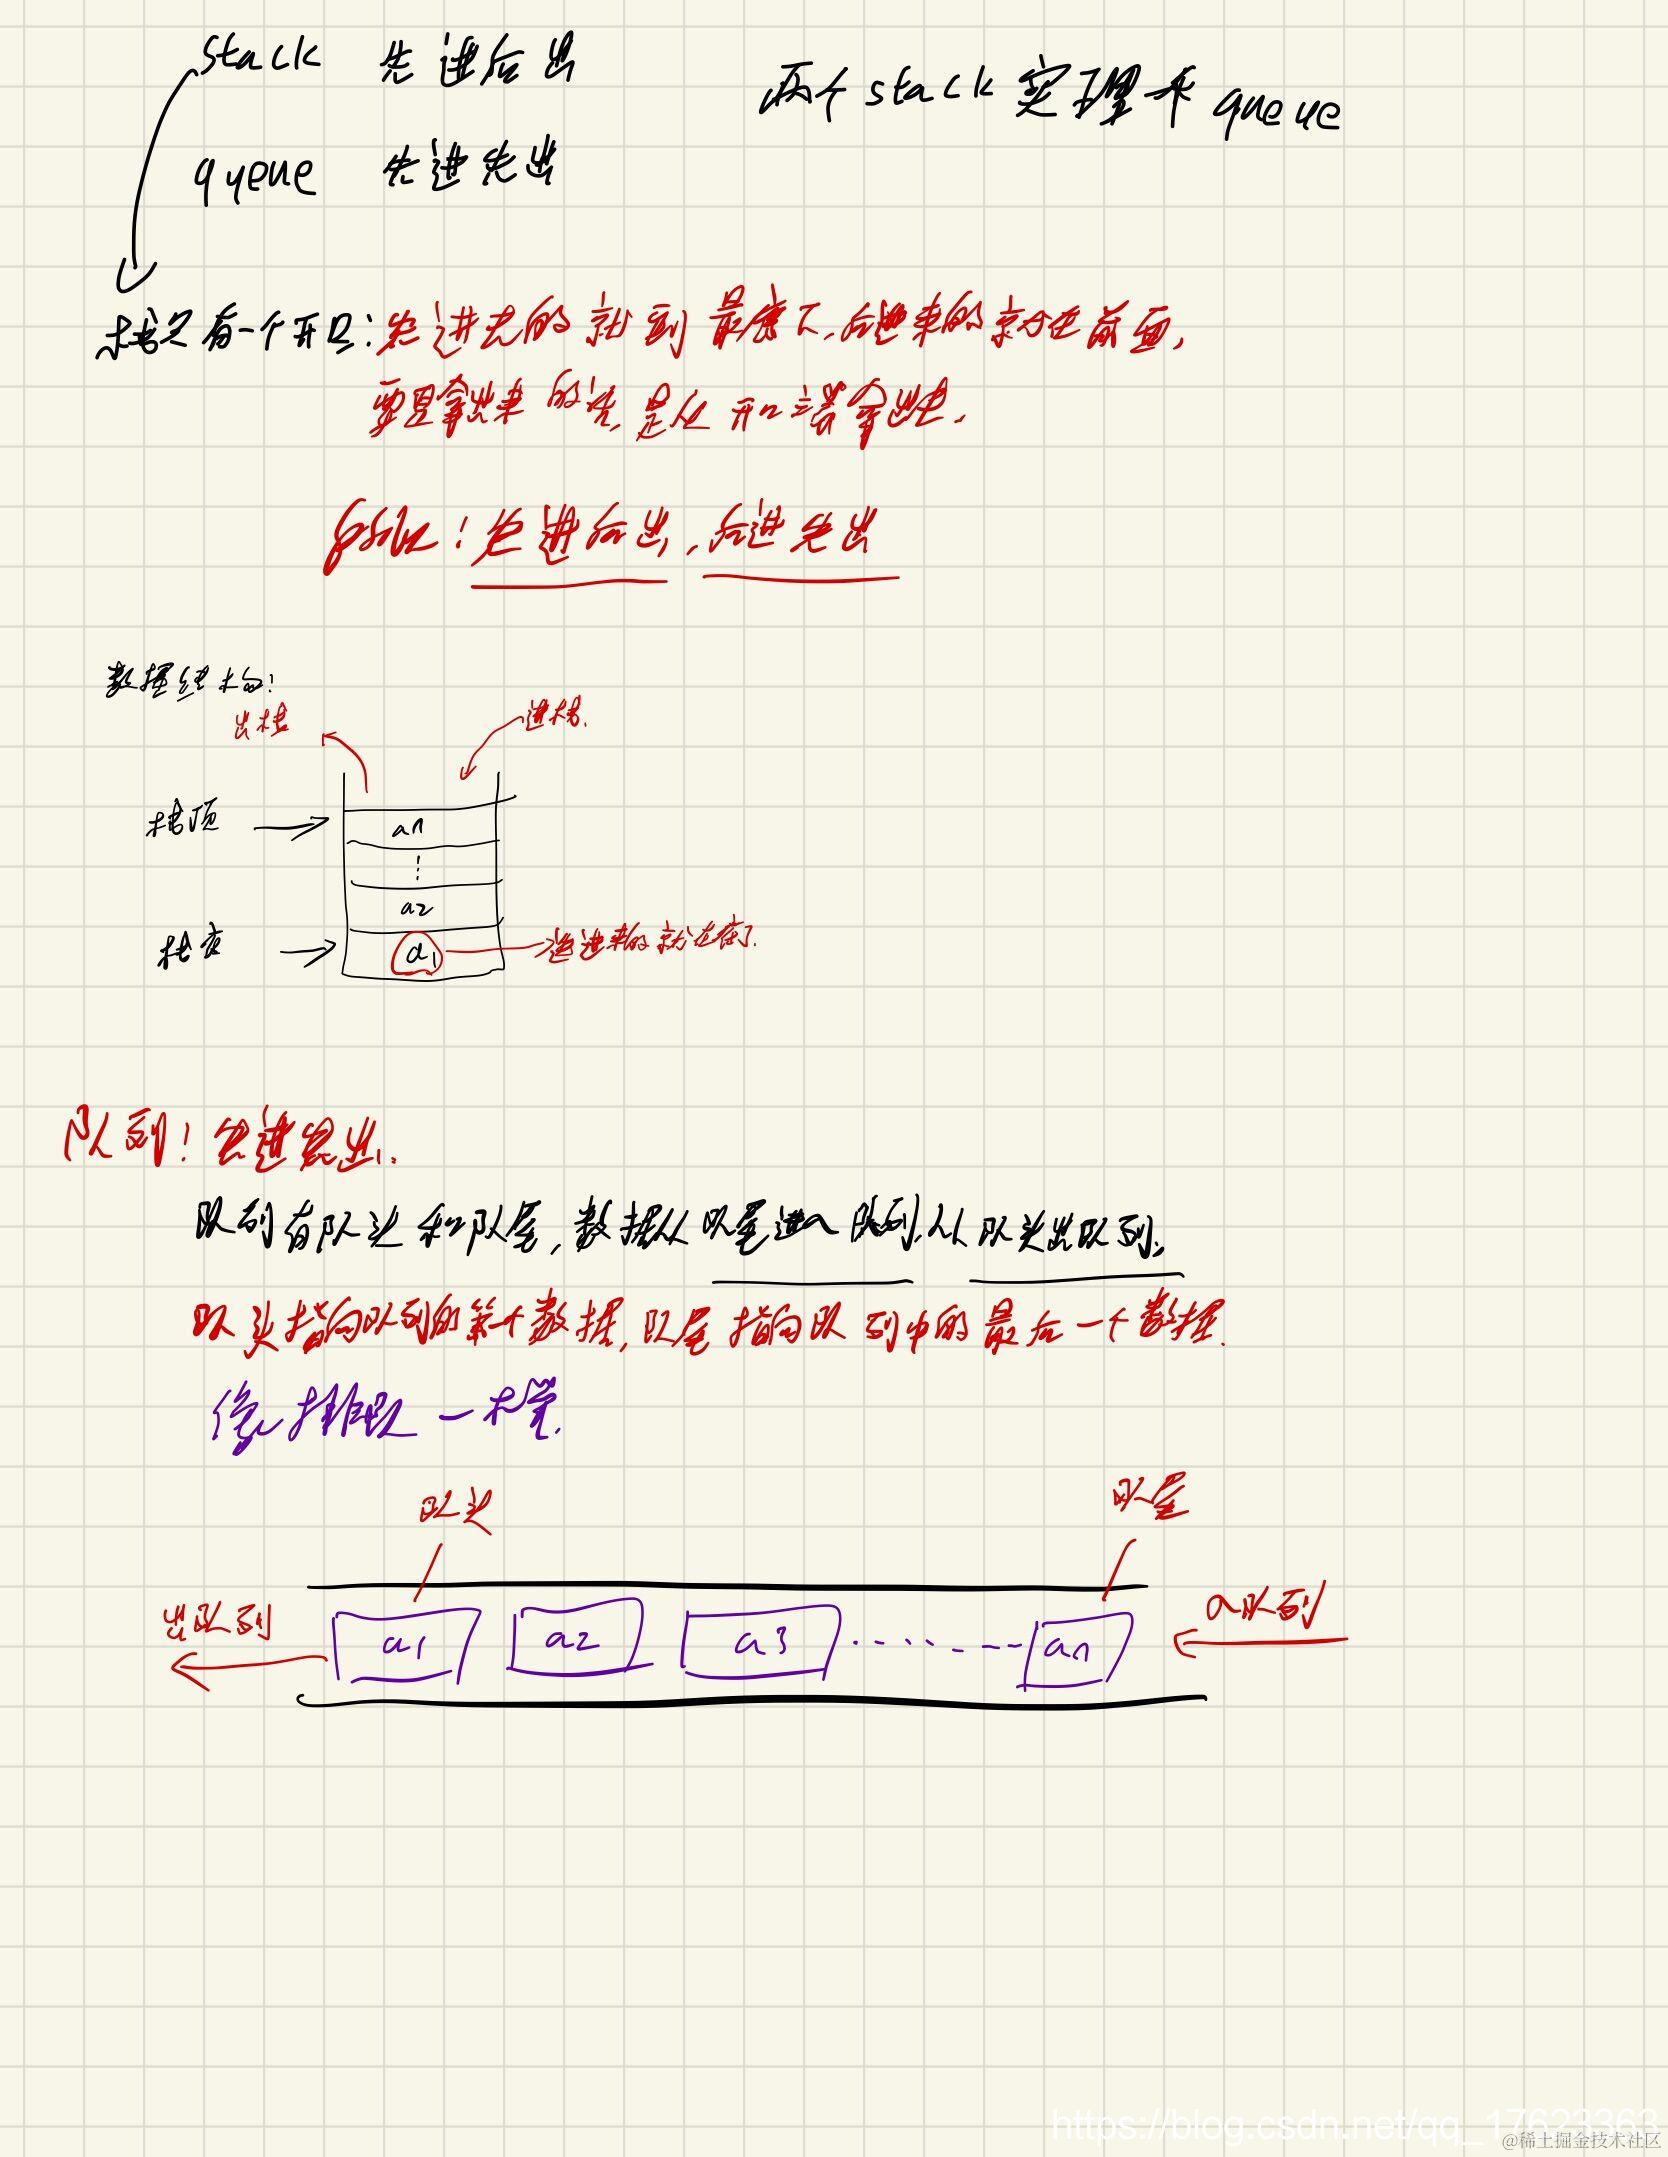 stack 先进后出
两个stack实现一个queue
queue 先进先出
栈只有一个开口:先进去的就到最底下,后进来的就在前面,
要是拿出来的话,是从开口端拿出来.
所以:先进后出,后进先出
数据结构:
出栈
进栈.
栈顶
an
a2
栈底
a1
进来的就在底下.
队列:先进先出.
队列有队头和队尾,数据从队尾进入队列,从队头出队列.
队头指向队列的第一个数据,队尾指向队列中的最后一个数据.
像排队一样.
队头
队尾
出队列
a1 a2 a3 ...... an
入队列
https://blog.csdn.net/qq_17623363
@稀土掘金技术社区